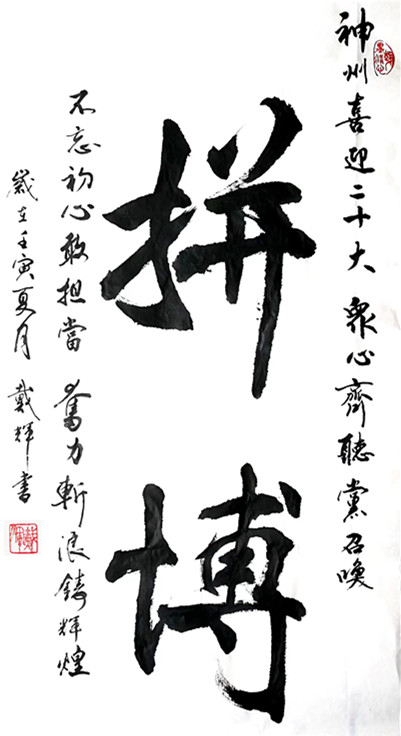 神州喜迎二十大 衆心齊聽黨召喚
拼博
不忘初心敢担當 奮力斬浪鑄輝煌
歲在壬寅夏月 戴輝書